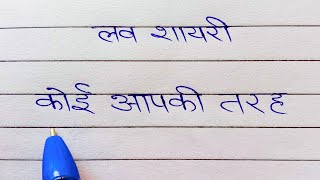 लव शायरी
कोई आपकी तरह